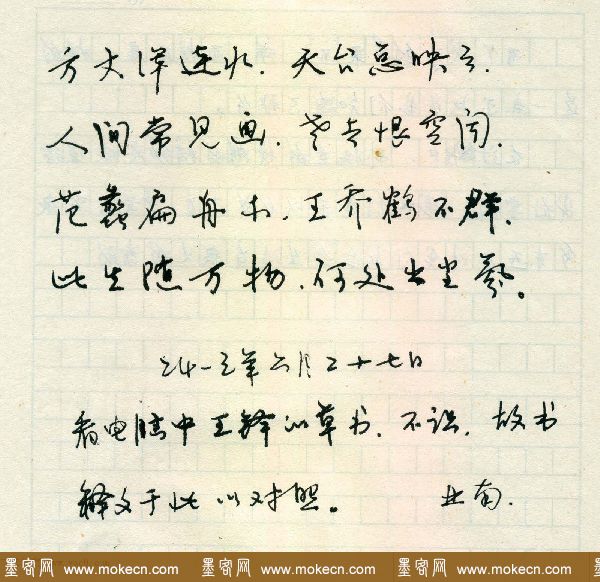 方丈浑连水,天台总映云.
人间常见画,老去恨空闻.
范蠡扁舟小,王乔鹤不群.
此生随万物,何处出尘氛。
二〇一三年六月二十七日
看电脑中王铎以草书,不识,故书
释文于此以对照。 南.
墨客网 www.mokecn.com 墨客网 www.mokecn.com 墨客网 www.mokecn.com